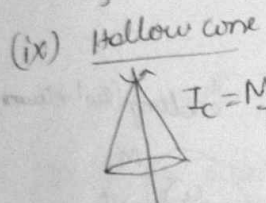 (ix) Hollow cone
I_c = M